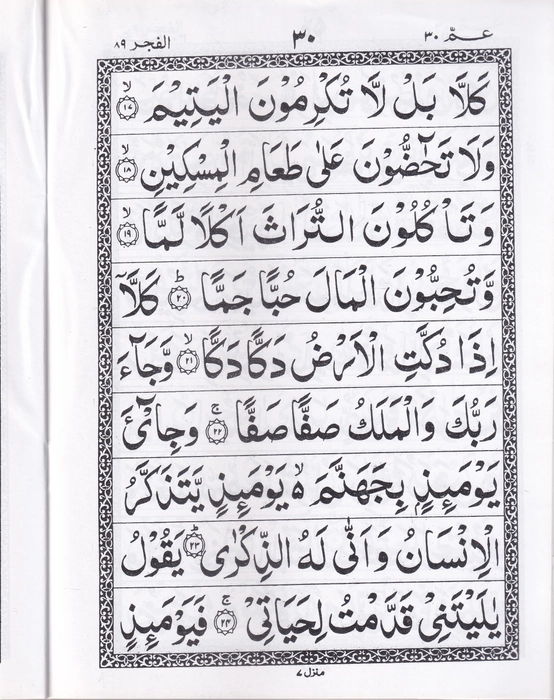 عمّ ٣٠ ٣٠ الفجر ٨٩
كَلَّا بَلْ لَّا تُكْرِمُوْنَ الْيَتِيْمَ ۙ﴿١٧﴾
وَلَا تَحٰٓضُّوْنَ عَلٰى طَعَامِ الْمِسْكِيْنِ ۙ﴿١٨﴾
وَتَاْكُلُوْنَ التُّرَاثَ اَكْلًا لَّمًّا ۙ﴿١٩﴾
وَّتُحِبُّوْنَ الْمَالَ حُبًّا جَمًّا ؕ﴿٢٠﴾ كَلَّاۤ
اِذَا دُكَّتِ الْاَرْضُ دَكًّا دَكًّا ۙ﴿٢١﴾ وَّجَآءَ
رَبُّكَ وَالْمَلَكُ صَفًّا صَفًّا ۚ﴿٢٢﴾ وَجِایْٓءَ
يَوْمَئِذٍۭ بِجَهَنَّمَ ۙ۬ يَوْمَئِذٍ يَّتَذَكَّرُ
الْاِنْسَانُ وَاَنّٰى لَهُ الذِّكْرٰى ؕ﴿٢٣﴾ يَقُوْلُ
يٰلَيْتَنِىْ قَدَّمْتُ لِحَيَاتِىْ ۚ﴿٢٤﴾ فَيَوْمَئِذٍ
منزل ٧